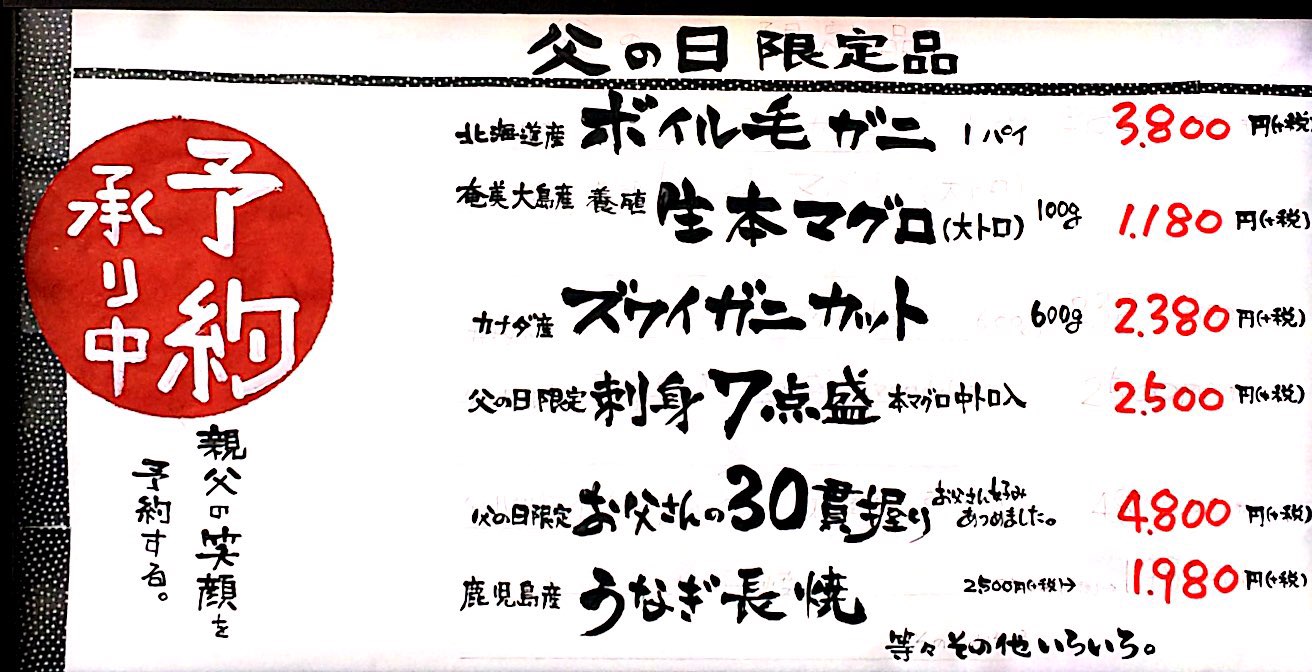 父の日限定品
予約
承り中
親父の笑顔を
予約する。
北海道産 ボイル毛ガニ 1パイ 3.800円(+税)
奄美大島産 養殖 生本マグロ(大トロ) 100g 1.180円(+税)
カナダ産 ズワイガニカット 600g 2.380円(+税)
父の日限定 刺身7点盛 本マグロ中トロ入 2.500円(+税)
父の日限定 お父さんの30貫握り お父さん好み 4.800円(+税)
あつめました。
鹿児島産 うなぎ長焼 2,500円(+税)→ 1.980円(+税)
等々その他いろいろ。